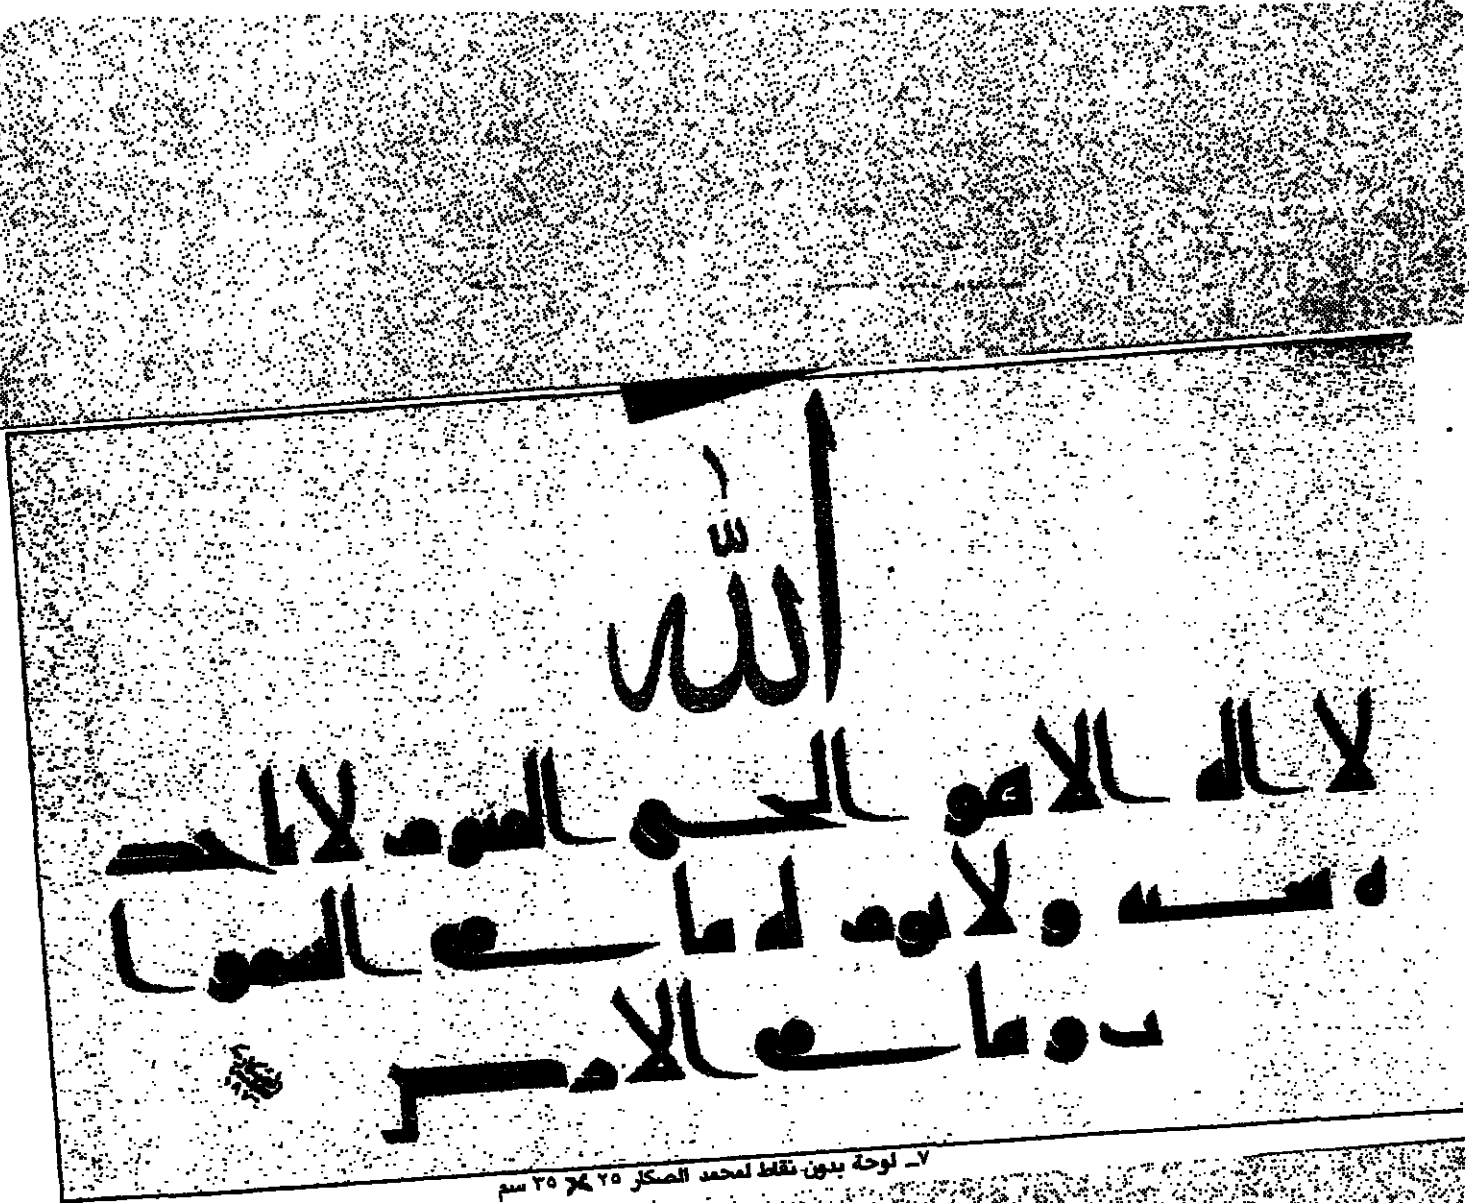 الله
لا اله الا هو الحي القيوم لا تاخذ
ه سنة و لا نوم له ما في السموا
ت و ما في الارض
٧ــ لوحة بدون نقاط لمحمد الصكار ٢٥ × ٣٥ سم